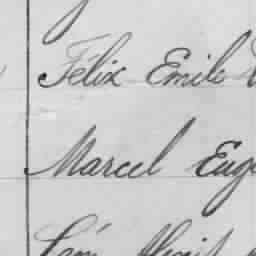 Félix Emile
Marcel Eug